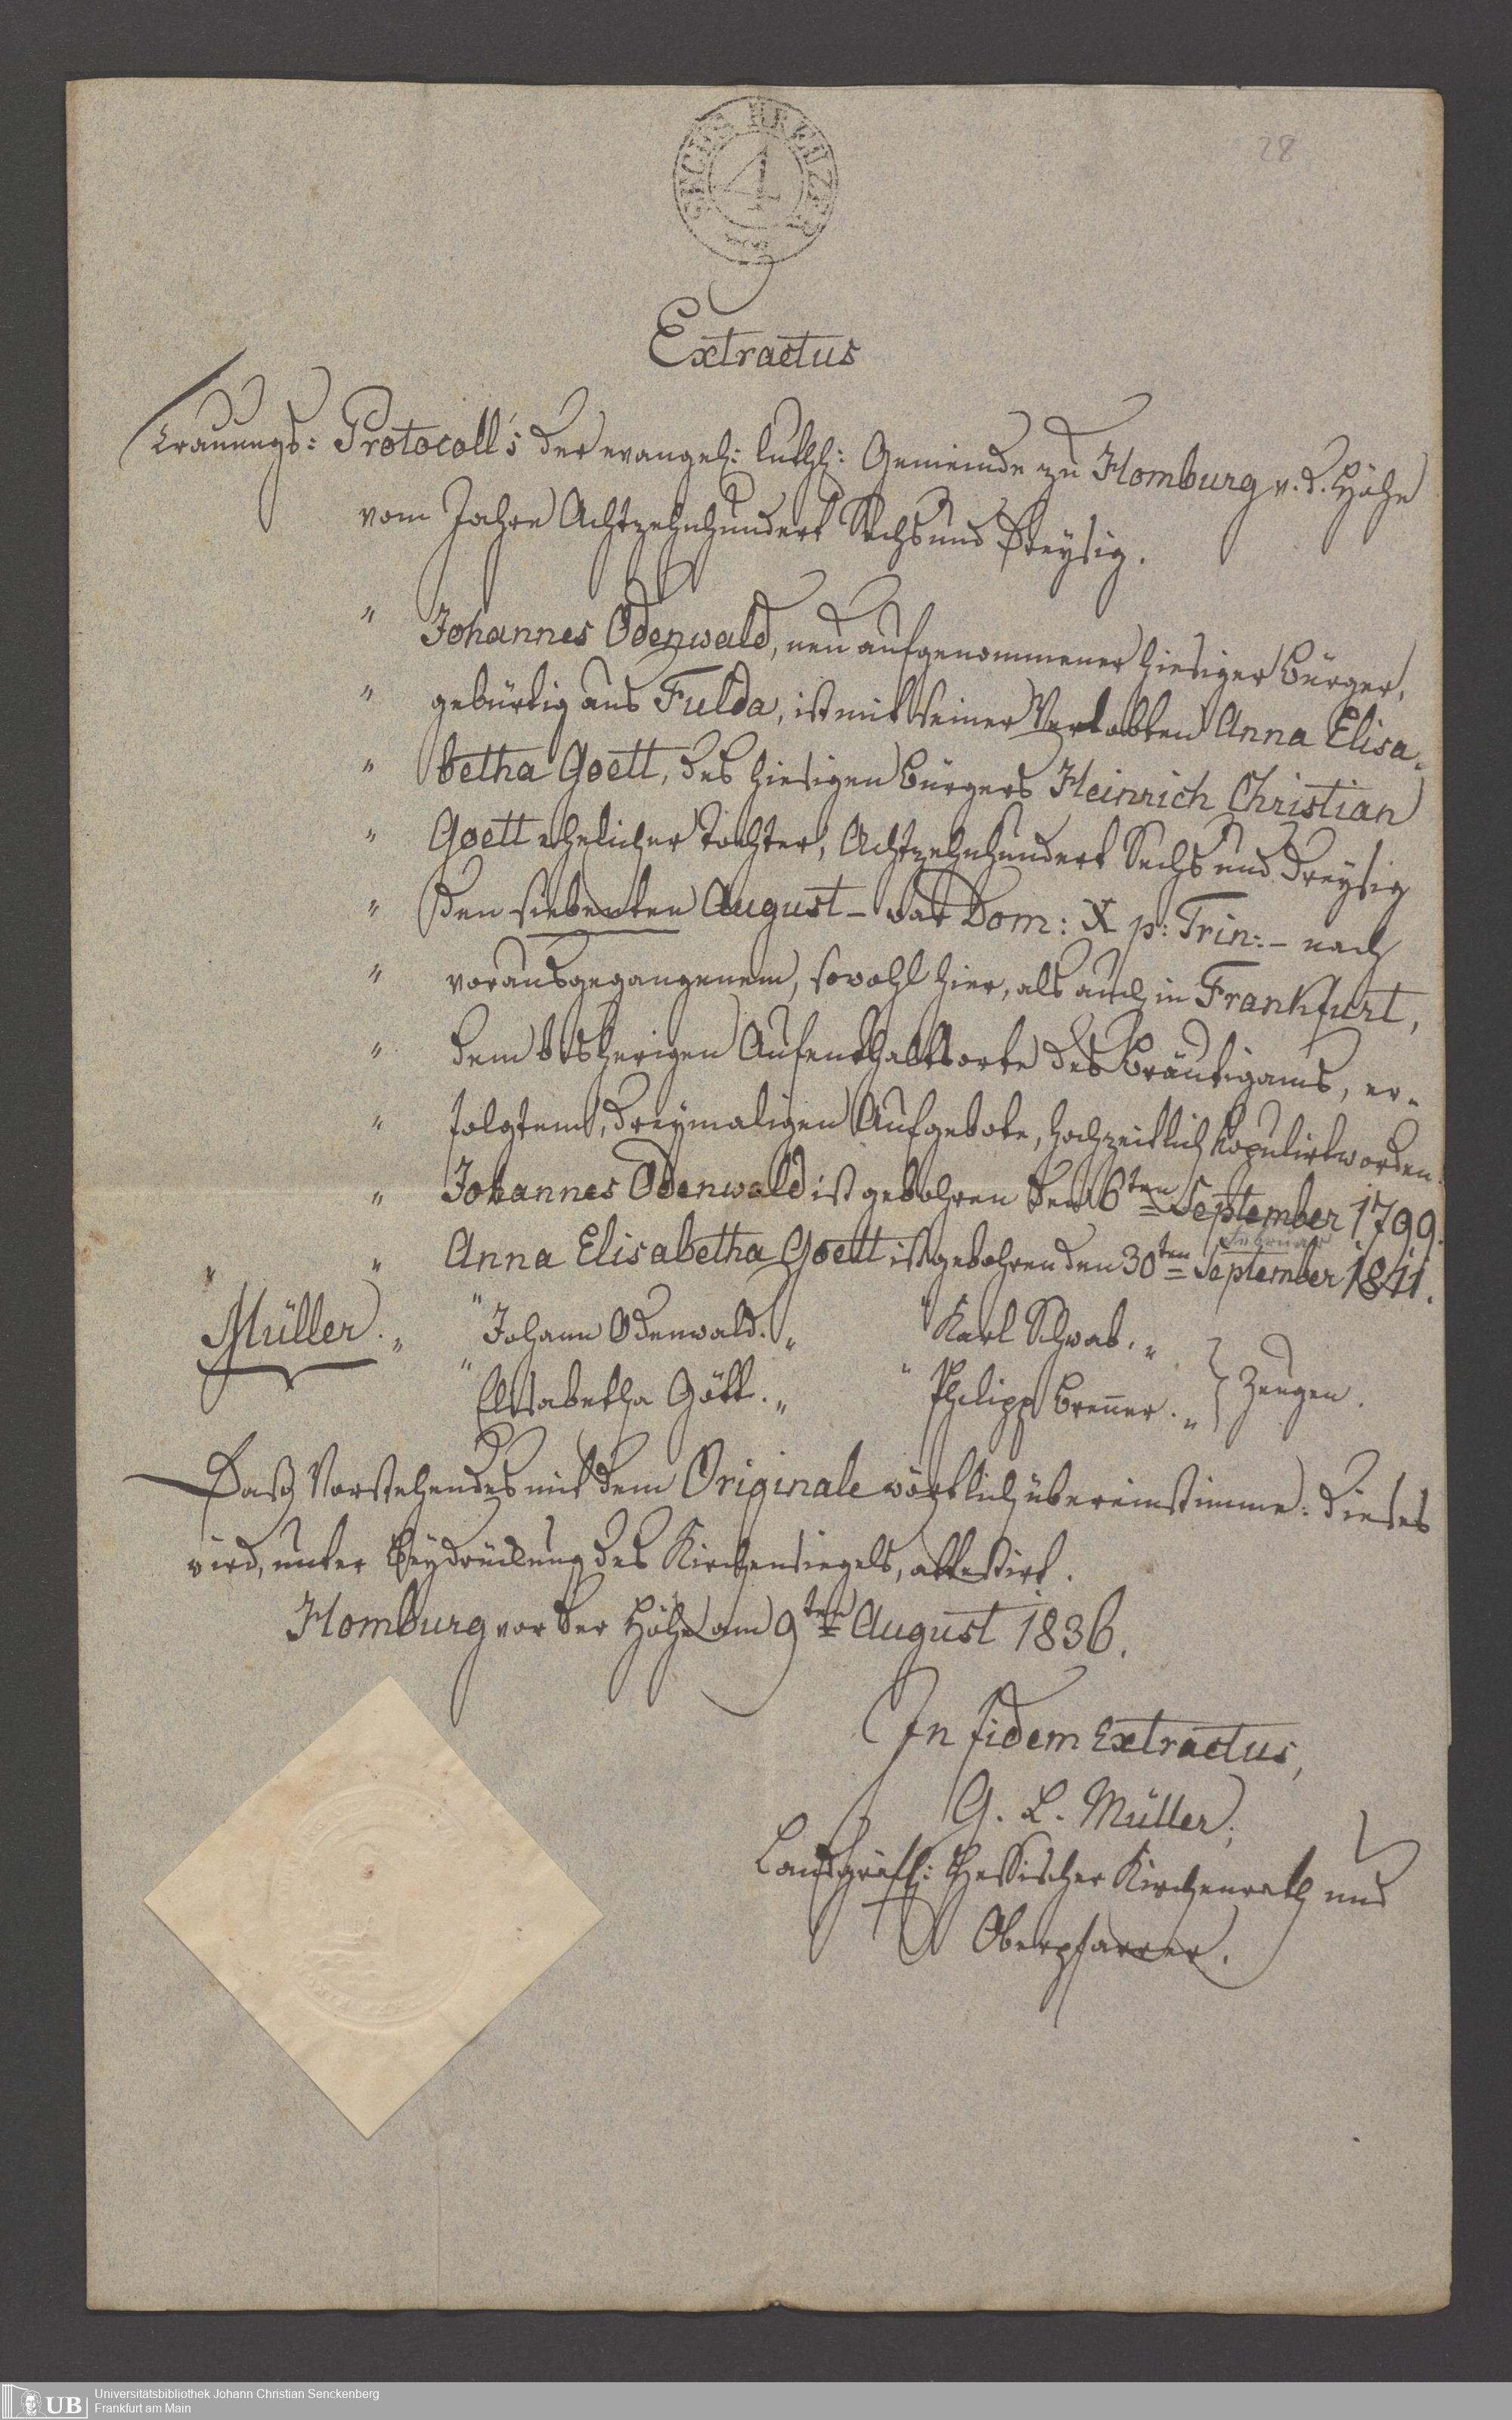 SECHS KREUZER
4
28
Extractus
Trauungs: Protocoll's der evangel: luthl: Gemeinde zu Homburg v. d. Höhe
vom Jahre Achtzehnhundert Sechs und Dreysig.
" Johannes Odenwald, neu aufgenommener hiesiger Bürger,
" gebürtig aus Fulda, ist mit seiner Verlobten Anna Elisa-
" betha Goett, des hiesigen Bürgers Heinrich Christian
" Goett ehelicher Tochter, Achtzehnhundert Sechs und Dreysig
" den siebenten August – war Dom: X p: Trin: – nach
" vorausgegangenem, sowohl hier, als auch in Frankfurt,
" dem bisherigen Aufenthaltsorte des Bräutigams, er-
" folgtem, dreymaligen Aufgebote, hochzeitlich kopulirt worden.
" Johannes Odenwald ist gebohren den 6ten September 1799.
Februar
" " Anna Elisabetha Goett ist gebohren den 30ten September 1811.
Müller. " "Johann Odenwald. " "Karl Schwab. "
"Elisabetha Gött. " "Philipp Brenner. " } Zeugen.
Daß Vorstehendes mit dem Originale wörtlich übereinstimme: dieses
wird, unter Beydrückung des Kirchensiegels, attestirt.
Homburg vor der Höhe am 9ten August 1836.
In fidem Extractus,
G. L. Müller,
Landgräfl: Hessischer Kirchenrath und
Oberpfarrer.
UB
Universitätsbibliothek Johann Christian Senckenberg
Frankfurt am Main